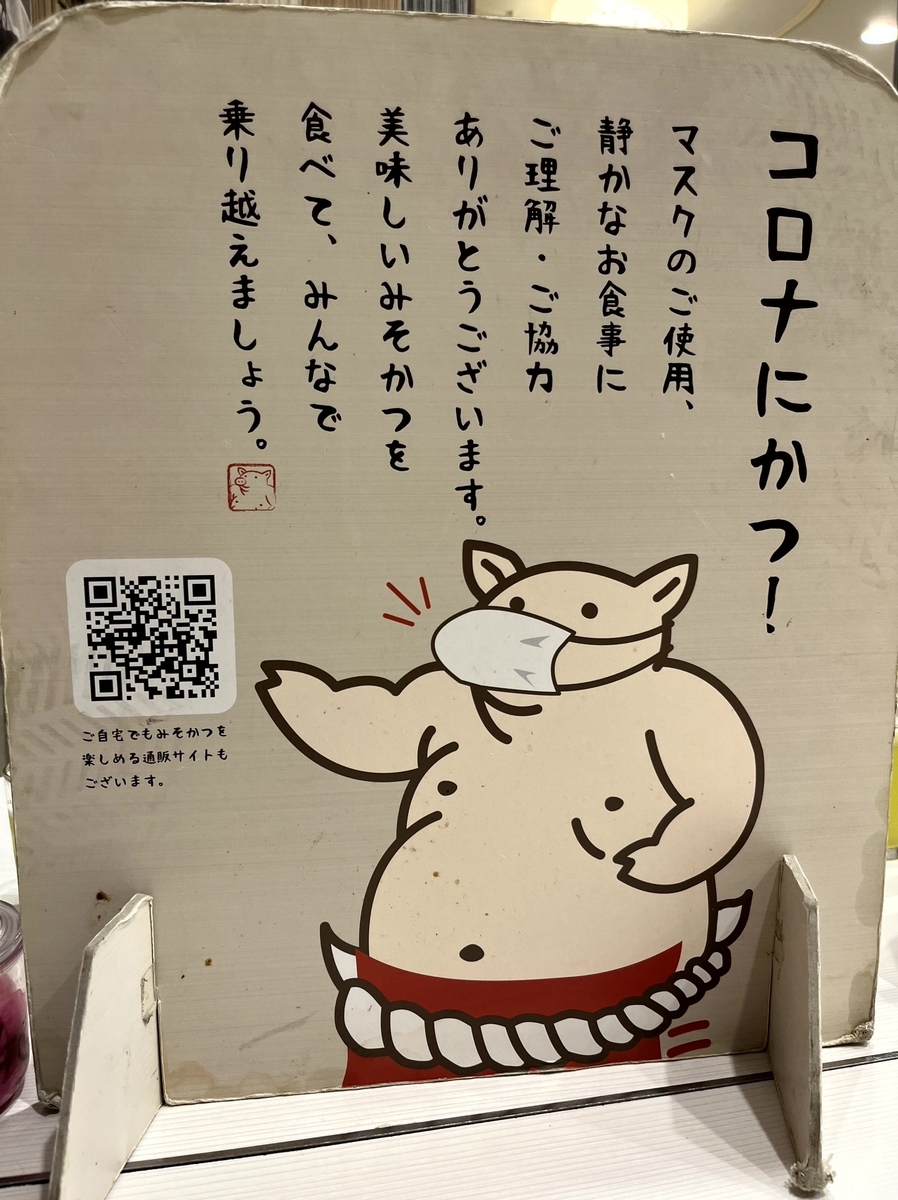 コロナにかつ！
マスクのご使用、
静かなお食事に
ご理解・ご協力
ありがとうございます。
美味しいみそかつを
食べて、みんなで
乗り越えましょう。
ご自宅でもみそかつを
楽しめる通販サイトも
ございます。